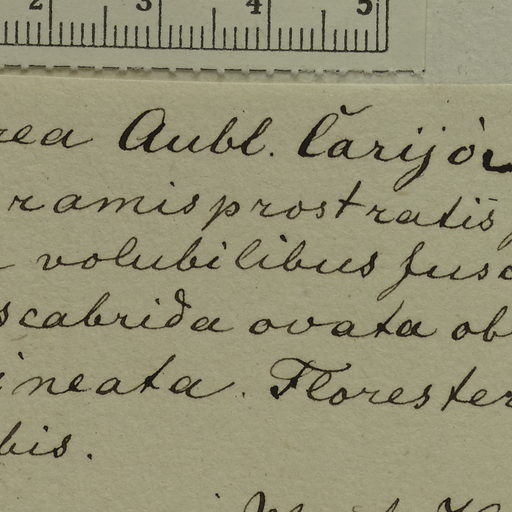 2 3 4 5
rea Aubl. Čarijó
ramis prostratis
volubilibus fusc
scabrida ovata ob
ineata. Florester
bis.